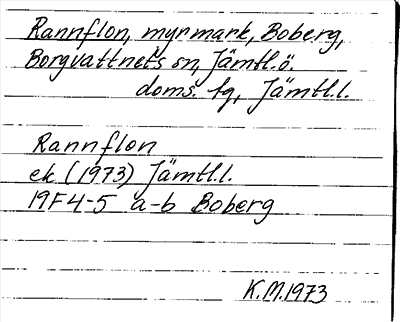 Rannflon, myrmark, Boberg,
Borgvattnets sn, Jämtl.ö.
doms. fg, Jämtl.l.
Rannflon
ek. (1973) Jämtl.l.
19F4-5 a-b Boberg
K.M.1973